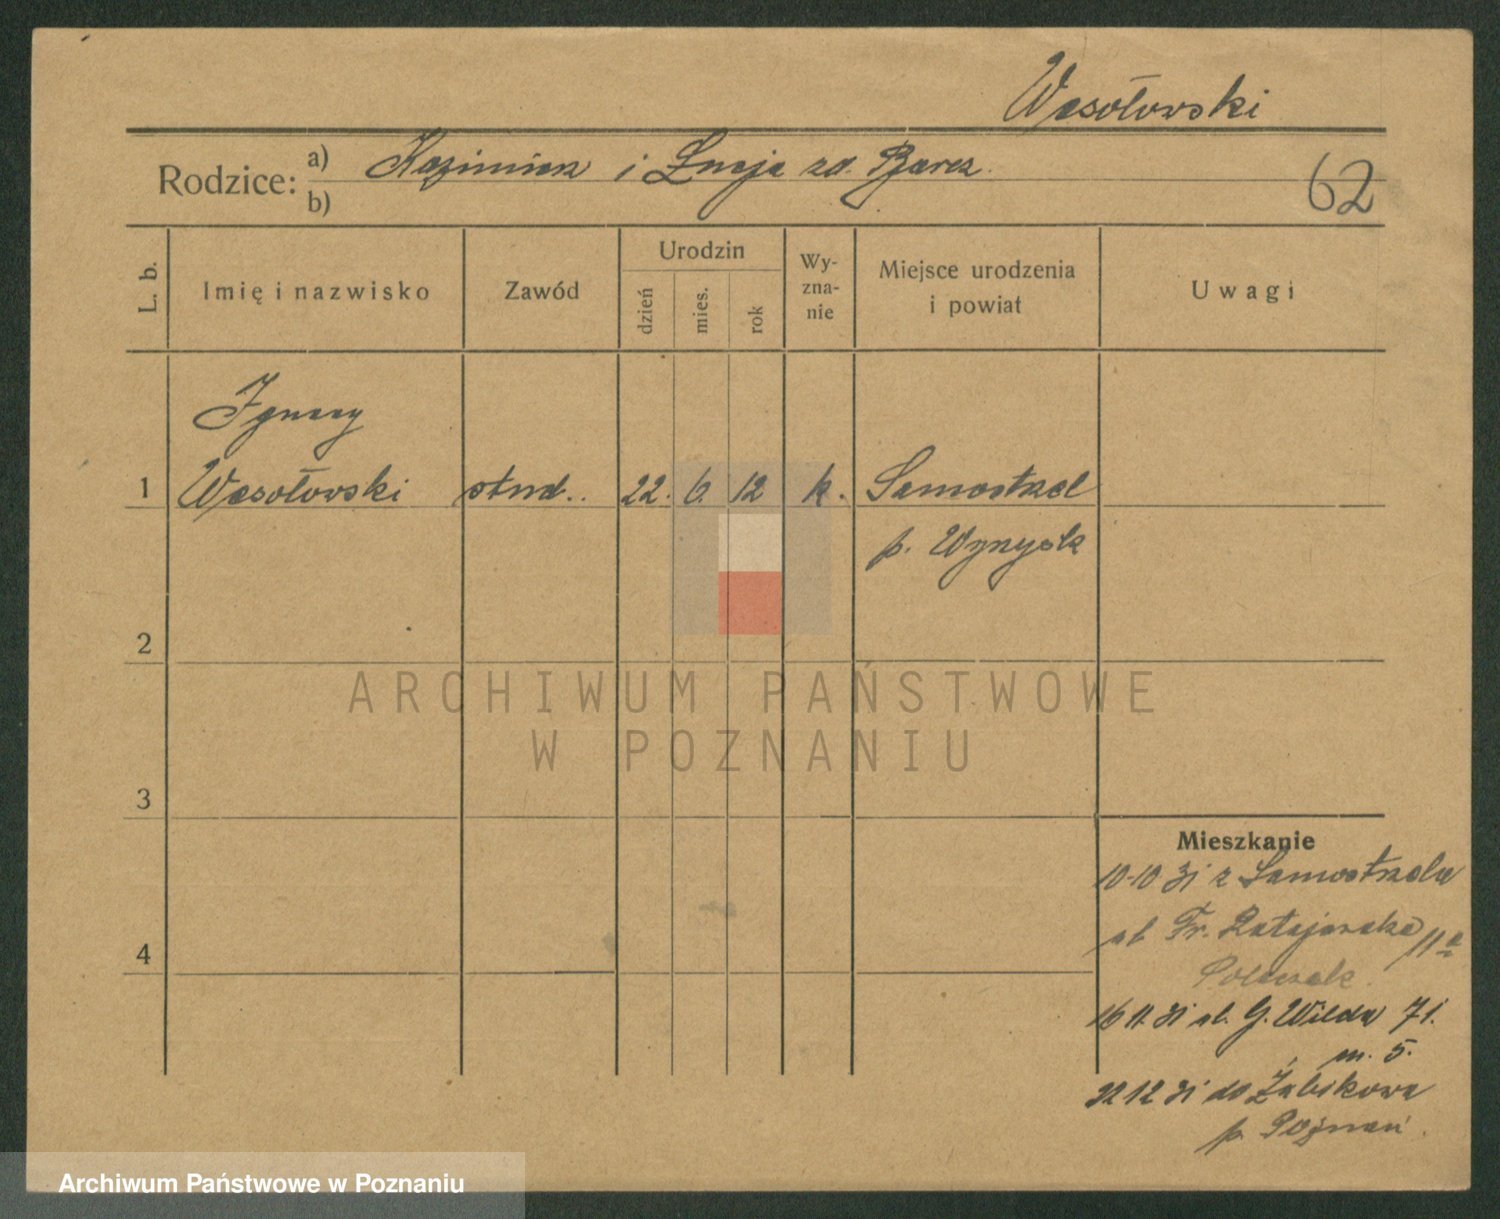 Wesołowski
Rodzice: a) Kazimierz i Łucja zd. Bjarcz.
b)
62
L. b.
Imię i nazwisko
Zawód
Urodzin
dzień
mies.
rok
Wy-
zna-
nie
Miejsce urodzenia
i powiat
Uwagi
Ignacy
1 Wesołowski stud. 22. 6. 12 k. Samostrzel
p. Wyrzysk
2
ARCHIWUM PAŃSTWOWE
W POZNANIU
3
Mieszkanie
10-10 31 z Samostrzela
ul. Fr. Ratajczaka 11a
4
16 11 31 ul. G. Wilda 71.
m. 5.
12 31 do Żabikowa
p. Poznań.
Archiwum Państwowe w Poznaniu